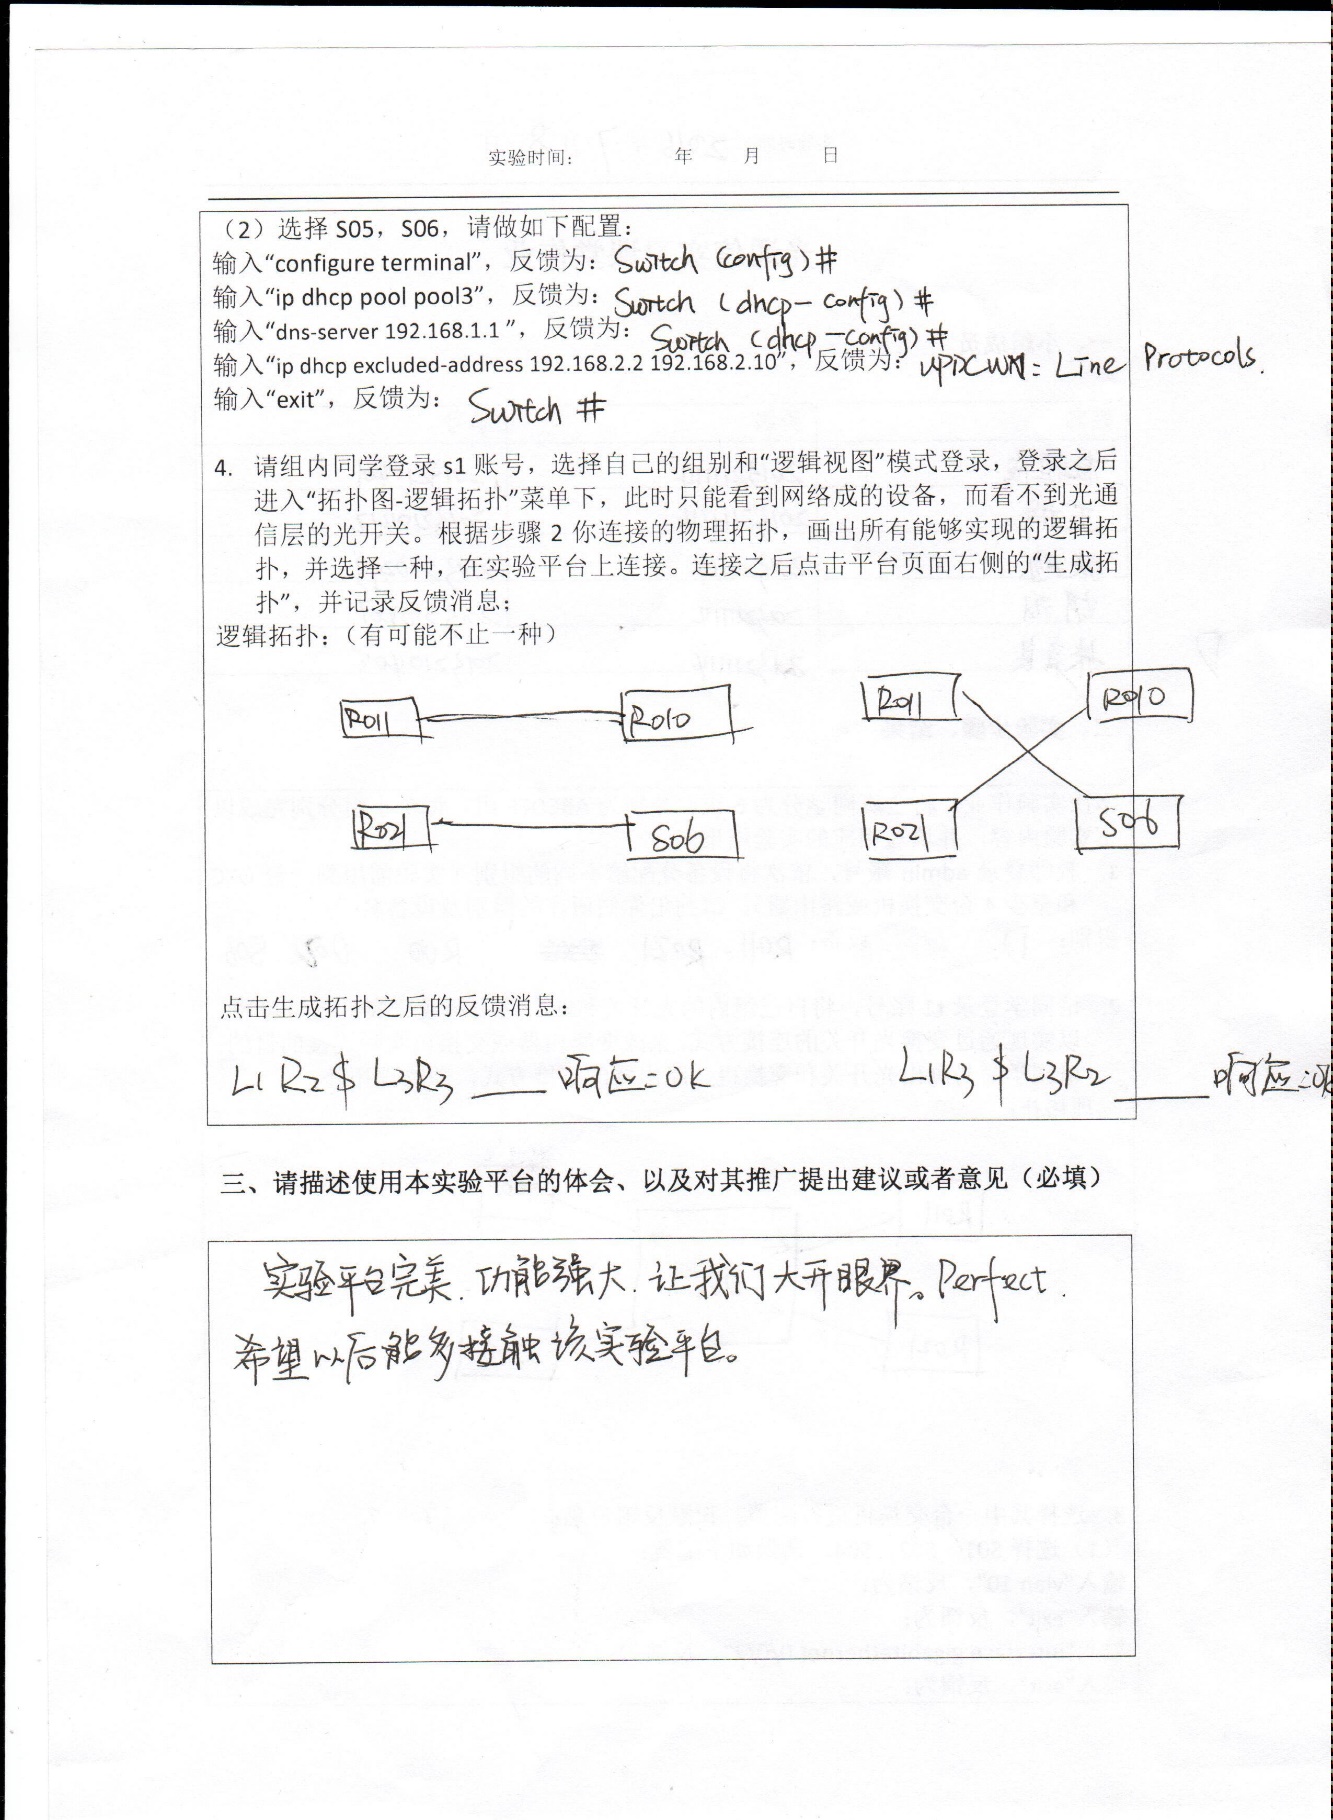 实验时间： 年 月 日
（2）选择 S05，S06，请做如下配置：
输入“configure terminal”，反馈为：Switch (config)#
输入“ip dhcp pool pool3”，反馈为：Switch (dhcp-config)#
输入“dns-server 192.168.1.1 ”，反馈为：Switch (dhcp-config)#
输入“ip dhcp excluded-address 192.168.2.2 192.168.2.10”，反馈为：Line Protocols.
输入“exit”，反馈为：Switch #
4. 请组内同学登录 s1 账号，选择自己的组别和“逻辑视图”模式登录，登录之后
进入“拓扑图-逻辑拓扑”菜单下，此时只能看到网络成的设备，而看不到光通
信层的光开关。根据步骤 2 你连接的物理拓扑，画出所有能够实现的逻辑拓
扑，并选择一种，在实验平台上连接。连接之后点击平台页面右侧的“生成拓
扑”，并记录反馈消息；
逻辑拓扑：（有可能不止一种）
R011 R010 R011 R010
R021 S06 R021 S06
点击生成拓扑之后的反馈消息：
L1R2 $ L3R3 ___ 响应=OK L1R3 $ L3R2 ___ 响应=OK
三、请描述使用本实验平台的体会、以及对其推广提出建议或者意见（必填）
实验平台完美.功能强大.让我们大开眼界。Perfect.
希望以后能多接触该实验平台。